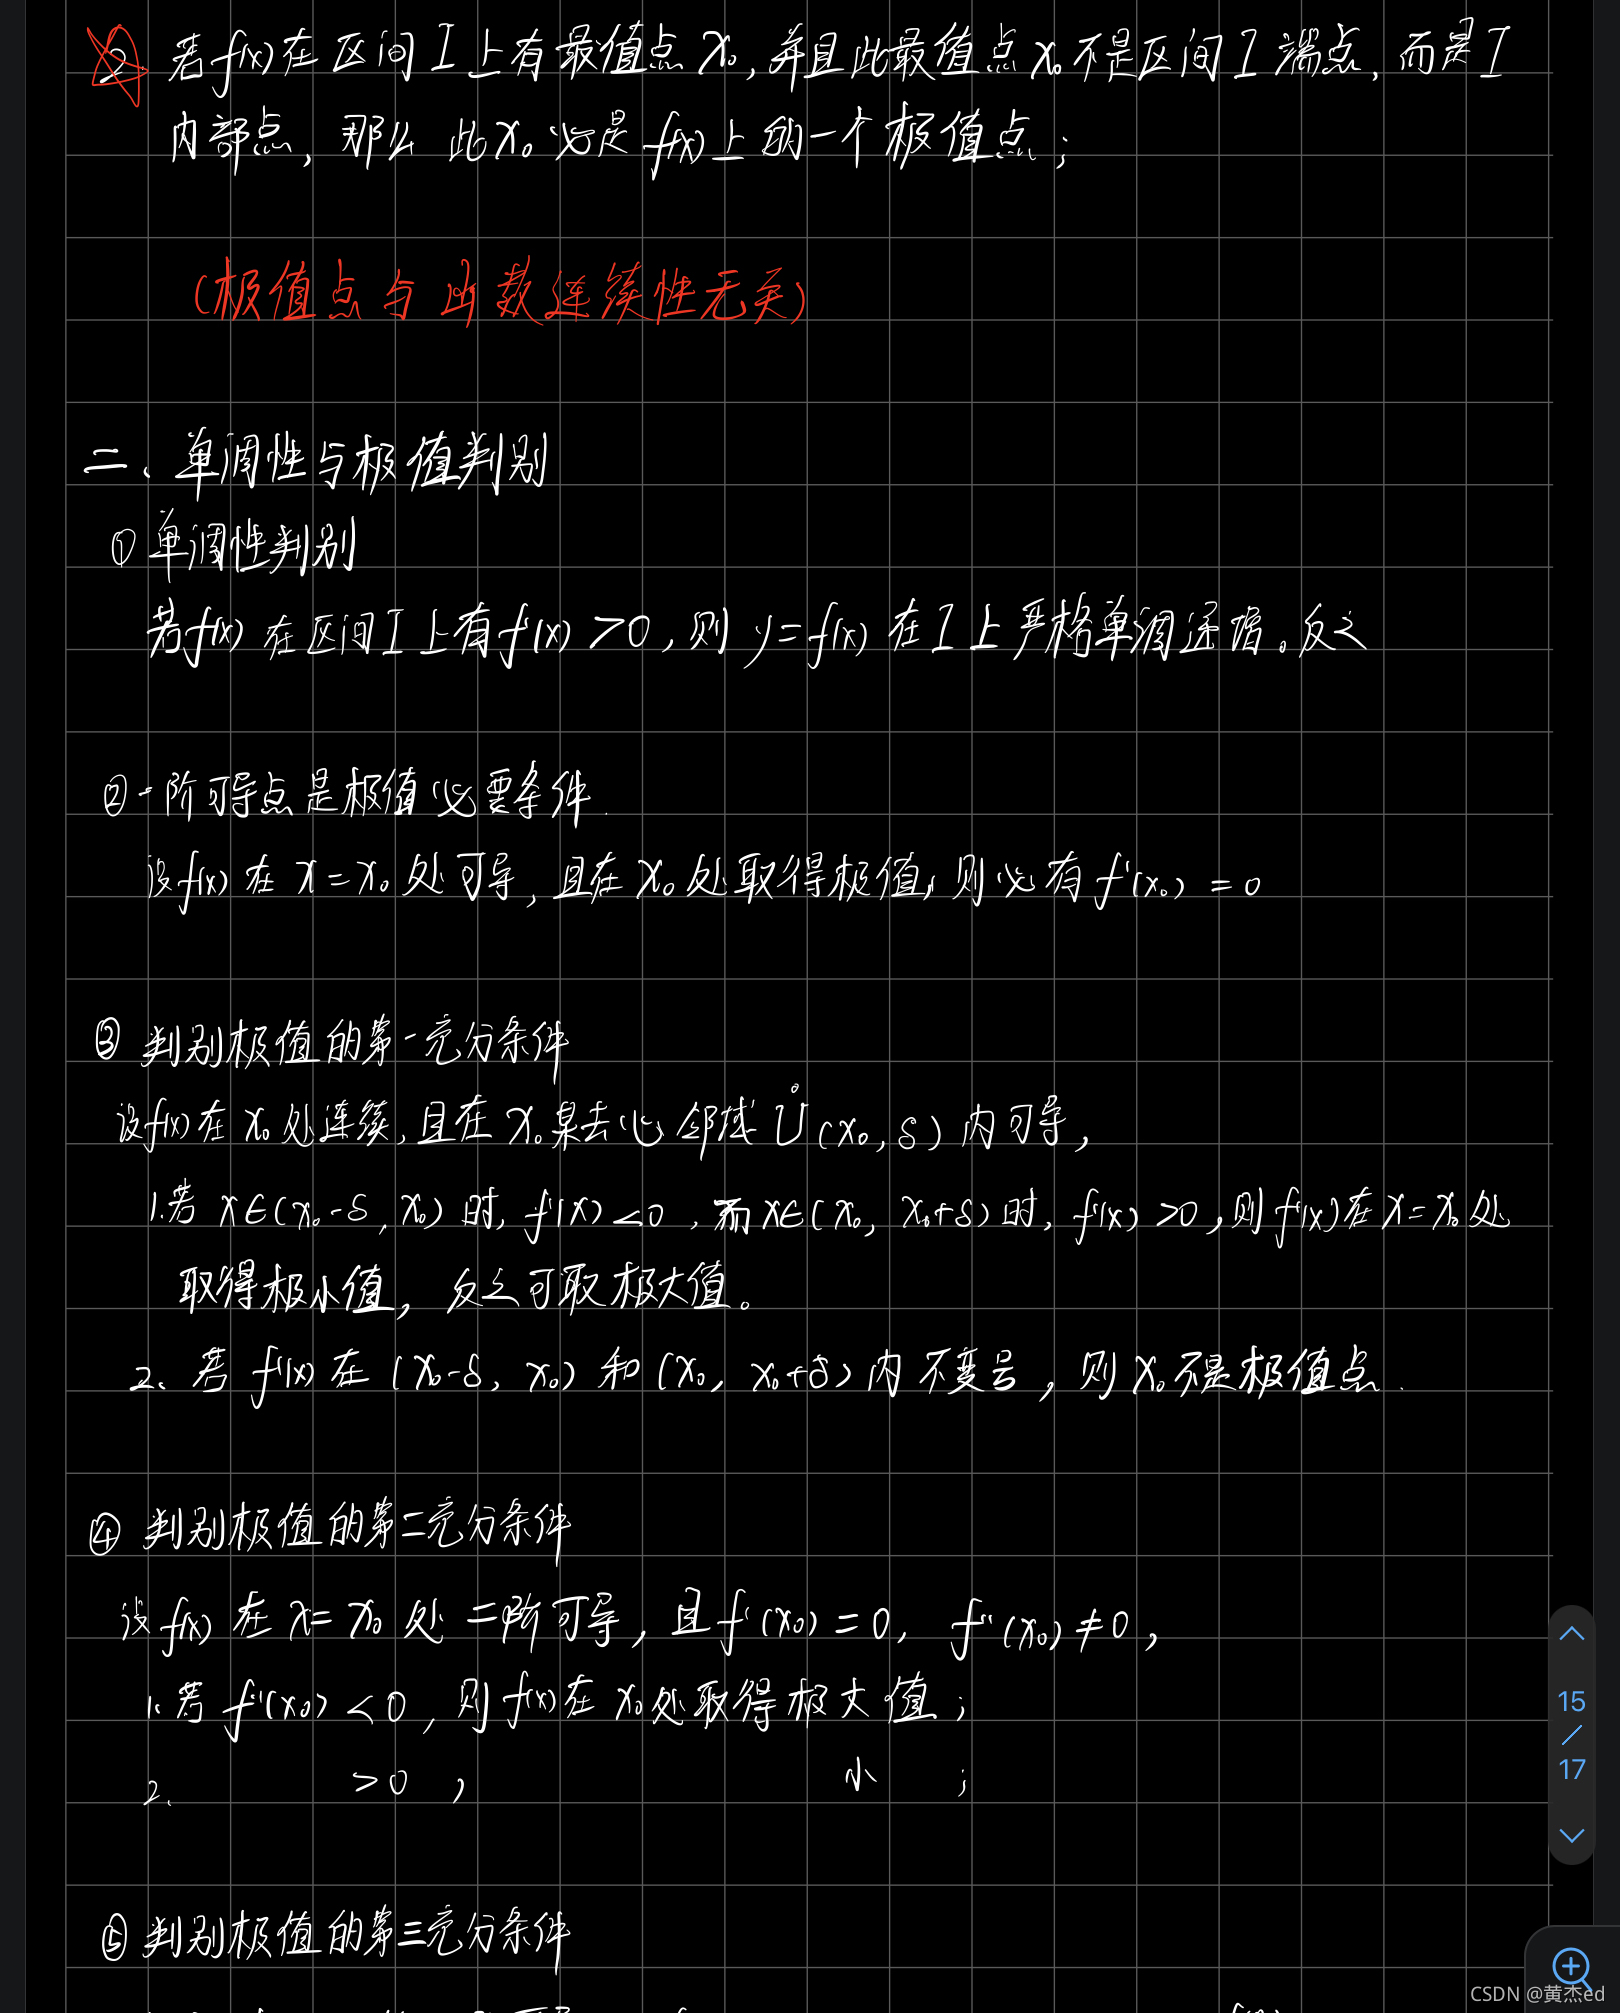 2. 若f(x)在区间I上有最值点x₀,并且此最值点x₀不是区间I端点,而是I
内部点,那么此x₀必是f(x)上的一个极值点;
(极值点与函数连续性无关)
二、单调性与极值判别
① 单调性判别
若f(x)在区间I上有f'(x)>0,则y=f(x)在I上严格单调递增。反之
② 一阶可导点是极值必要条件.
设f(x)在x=x₀处可导,且在x₀处取得极值,则必有f'(x₀)=0
③ 判别极值的第一充分条件
设f(x)在x₀处连续,且在x₀某去心邻域Ů(x₀,δ)内可导,
1.若x∈(x₀-δ,x₀)时,f'(x)<0,而x∈(x₀,x₀+δ)时,f'(x)>0,则f(x)在x=x₀处
取得极小值,反之可取极大值。
2、若f'(x)在(x₀-δ,x₀)和(x₀,x₀+δ)内不变号,则x₀不是极值点.
④ 判别极值的第二充分条件
设f(x)在x=x₀处二阶可导,且f'(x₀)=0,f''(x₀)≠0,
1.若f''(x₀)<0,则f(x)在x₀处取得极大值;
2、 >0, 小 ;
⑤ 判别极值的第三充分条件
15
/
17
CSDN @黄杰ed